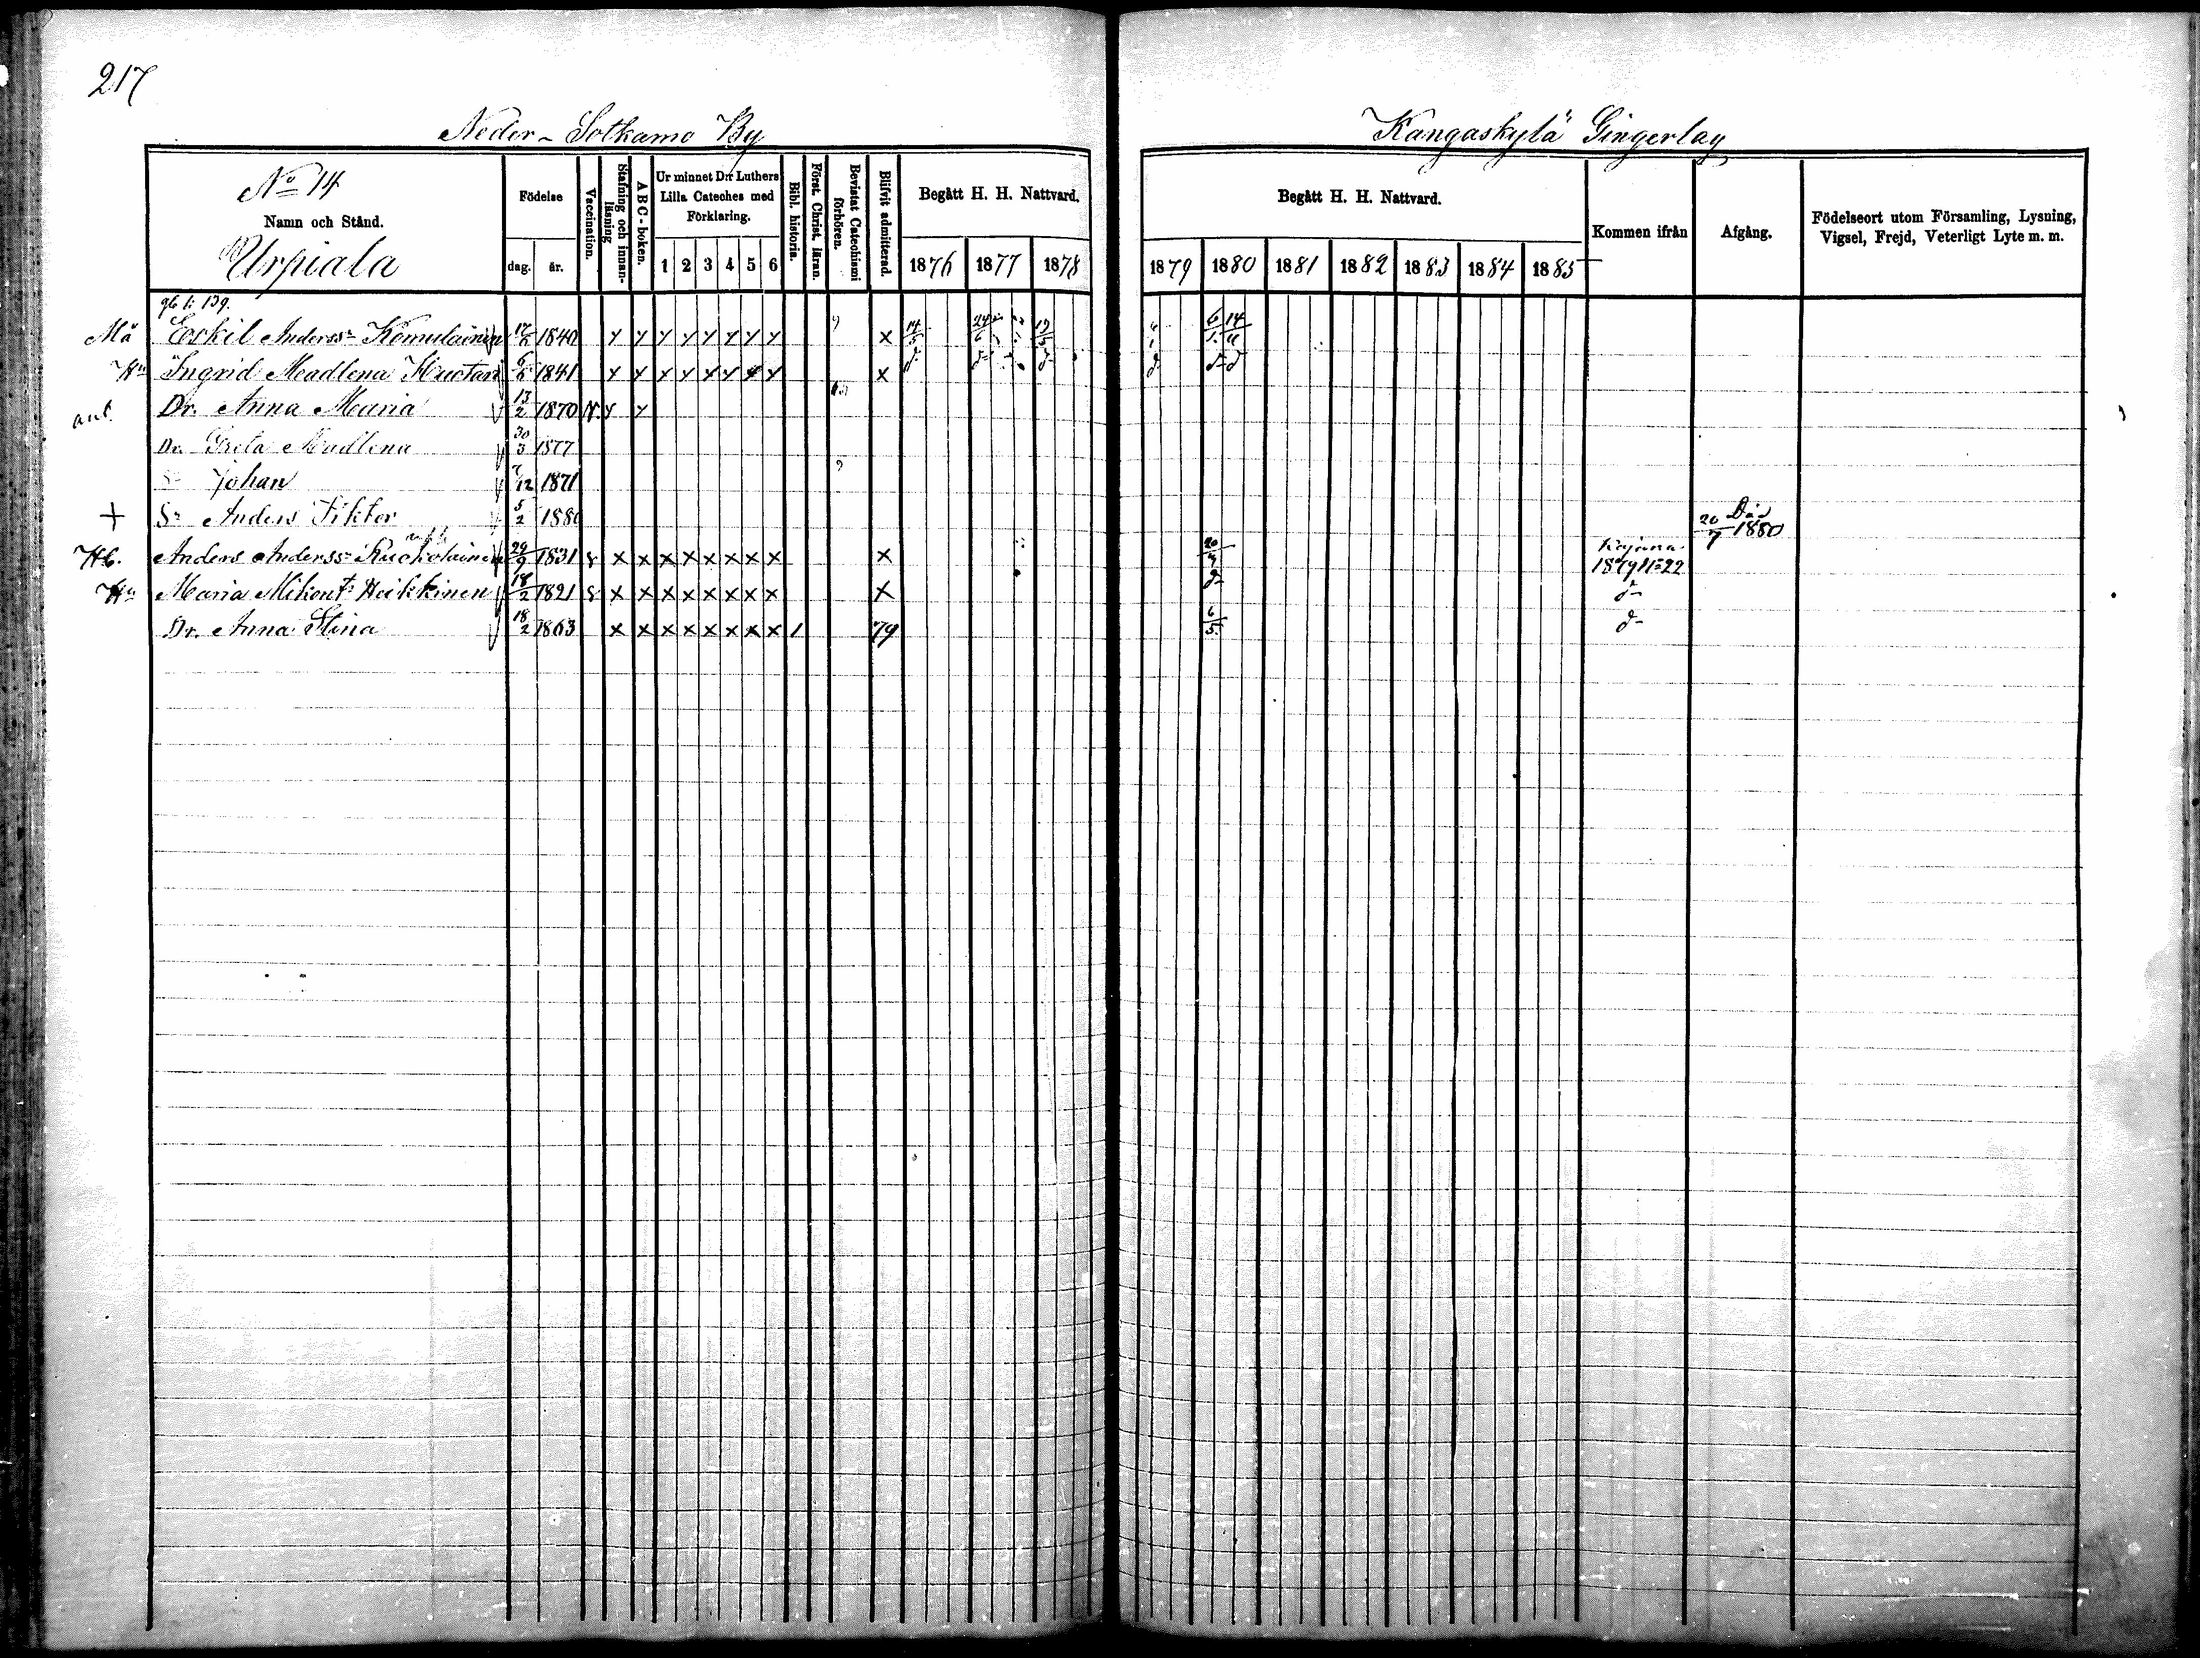 217
Neder-Sotkamo By
Kangaskylä Gingerlag
No 14
Namn och Stånd.
Urpiala
Födelse
dag. år.
Vaccination.
Stafning och innanläsning
ABC-boken.
Ur minnet D:r Luthers Lilla Cateches med Förklaring.
1 2 3 4 5 6
Bibl. historia.
Först. Christ. läran.
Bevistat Catechismi förhören.
Blifvit admitterad.
Begått H. H. Nattvard.
1876 1877 1878
Begått H. H. Nattvard.
1879 1880 1881 1882 1883 1884 1885
Kommen ifrån
Afgång.
Födelseort utom Församling, Lysning, Vigsel, Frejd, Veterligt Lyte m. m.
Må Eskil Anderss: Komulainen 1840 x x x x x x x x x 6/5 14/11
Hu Ingrid Madlena Huotari 1841 x x x x x x x x x
Dr. Anna Maria 13/2 1870
Dr. Greta Madlena 30/3 1877
Johan 7/12 1871
+ Sn Anders Fiktor 5/2 1880 20/7 Död 1880
Hb. Anders Anderss: 29/9 1831 x x x x x x x x x Kajana 1879 11-22
Hu Maria Mikent: Heikkinen 18/2 1821 x x x x x x x x x d-
Dr. Anna Stina 18/2 1863 x x x x x x x x 1 79 6/5 d-